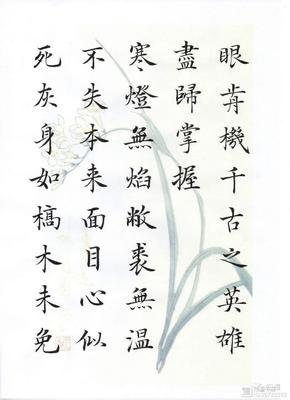 眼前機千古之英雄
盡歸掌握
寒燈無焰敝裘無溫
不失本来面目心似
死灰身如槁木未免